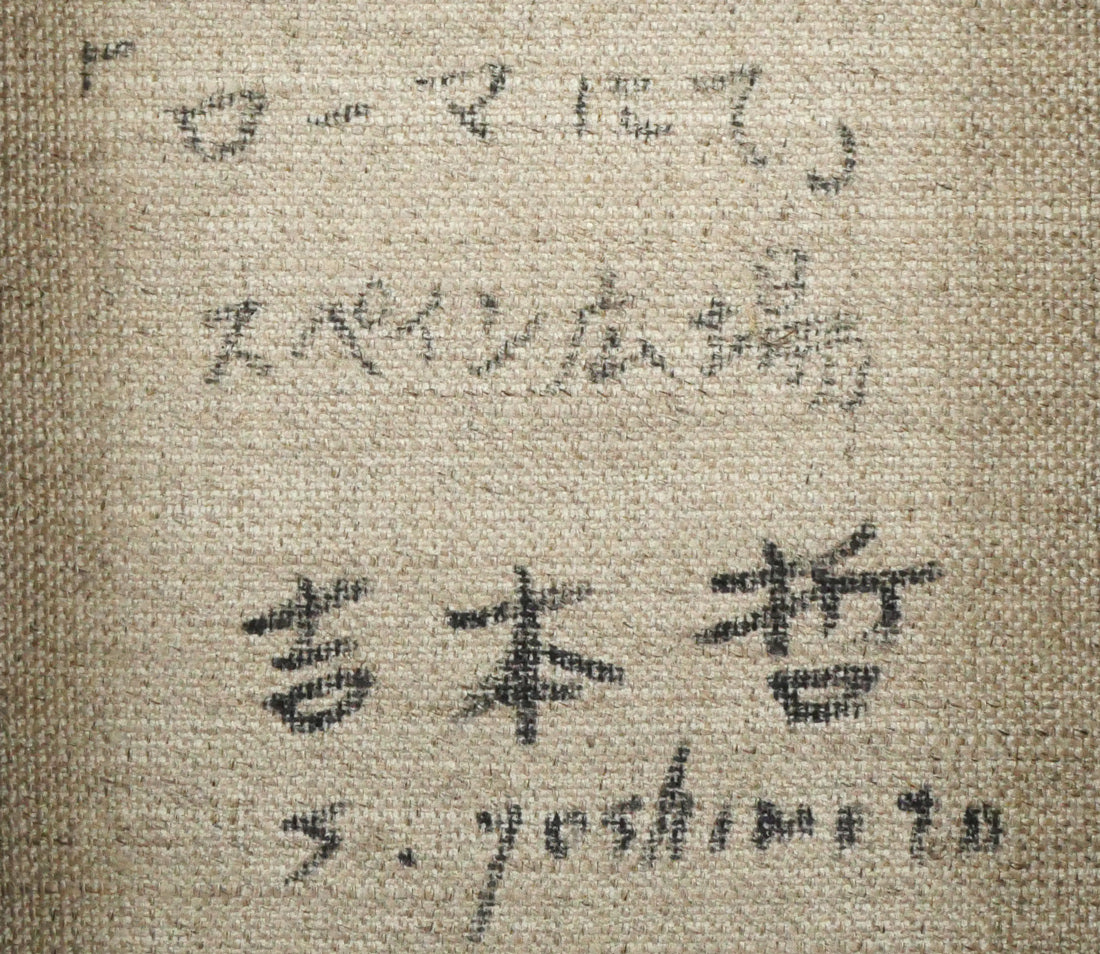 「ローマにて」
スペイン広場
吉本哲
S. yoshimoto